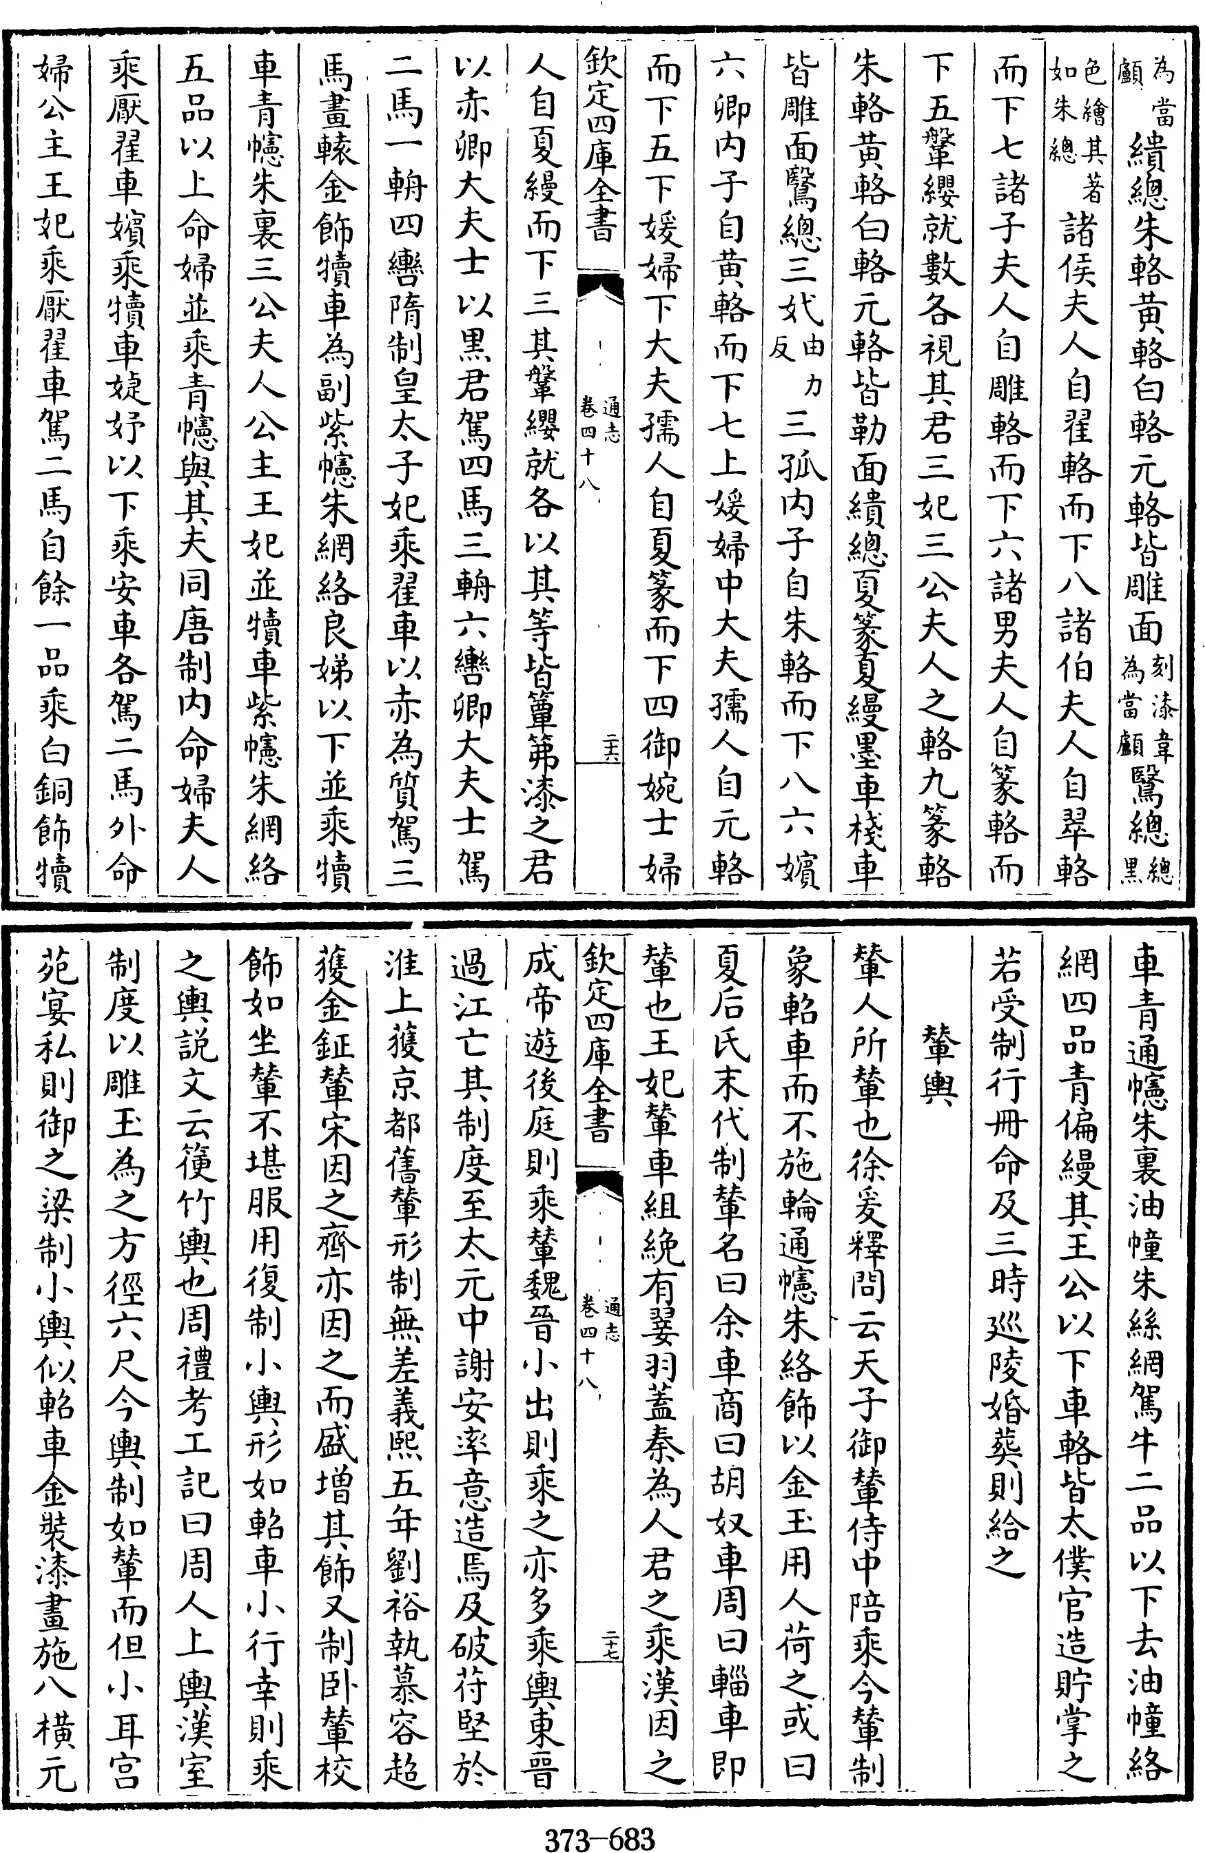 為當顱繢總朱輅黄輅白輅元輅皆雕面刻漆韋為當顱鷖總總黒
色繪其著如朱總諸侯夫人自翟輅而下八諸伯夫人自翠輅
而下七諸子夫人自雕輅而下六諸男夫人自篆輅而
下五鞶纓就數各視其君三妃三公夫人之輅九篆輅
朱輅黄輅白輅元輅皆勒面繢總夏篆夏縵墨車棧車
皆雕面鷖總三㚤由力反三孤内子自朱輅而下八六嬪
六卿内子自黄輅而下七上媛婦中大夫孺人自元輅
而下五下媛婦下大夫孺人自夏篆而下四御婉士婦
欽定四庫全書
通志
卷四十八
二十六
人自夏縵而下三其鞶纓就各以其等皆簟茀漆之君
以赤卿大夫士以黒君駕四馬三輈六轡卿大夫士駕
二馬一輈四轡隋制皇太子妃乘翟車以赤為質駕三
馬畫轅金飾犢車為副紫幰朱網絡良娣以下並乘犢
車青幰朱裏三公夫人公主王妃並犢車紫幰朱網絡
五品以上命婦並乘青幰與其夫同唐制内命婦夫人
乘厭翟車嬪乘犢車婕妤以下乘安車各駕二馬外命
婦公主王妃乘厭翟車駕二馬自餘一品乘白銅飾犢
車青通幰朱裏油幢朱絲網駕牛二品以下去油幢絡
網四品青偏縵其王公以下車輅皆太僕官造貯掌之
若受制行冊命及三時廵陵婚葬則給之
輦輿
輦人所輦也徐爰釋問云天子御輦侍中陪乘今輦制
象軺車而不施輪通幰朱絡飾以金玉用人荷之或曰
夏后氏末代制輦名曰余車商曰胡奴車周曰輜車即
輦也王妃輦車組絻有翣羽蓋秦為人君之乘漢因之
欽定四庫全書
通志
卷四十八
二十七
成帝遊後庭則乘輦魏晉小出則乘之亦多乘輿東晉
過江亡其制度至太元中謝安率意造焉及破苻堅於
淮上獲京都舊輦形制無差義熙五年劉裕執慕容超
獲金鉦輦宋因之齊亦因之而盛增其飾又制卧輦校
飾如坐輦不堪服用復制小輿形如軺車小行幸則乘
之輿説文云箯竹輿也周禮考工記曰周人上輿漢室
制度以雕玉為之方徑六尺今輿制如輦而但小耳宫
苑宴私則御之梁制小輿似軺車金裝漆畫施八橫元
373-683